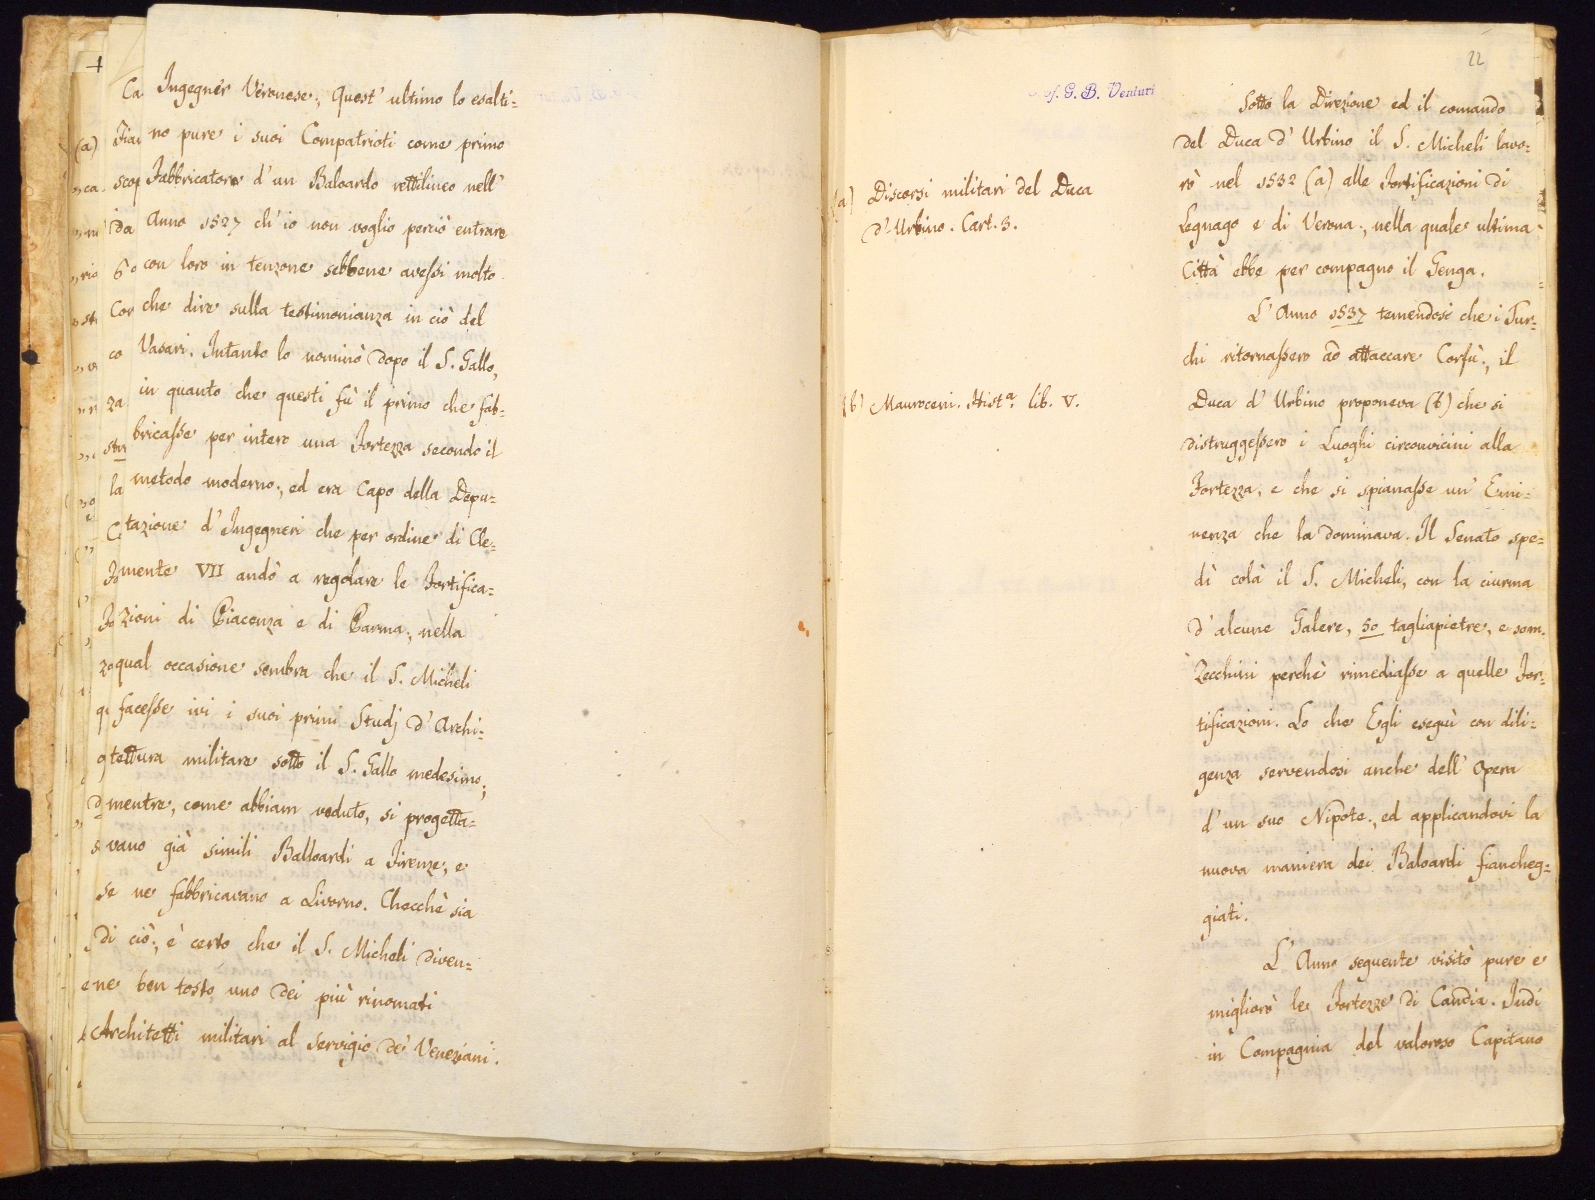 Ingegner Veronese; Quest' ultimo lo esalti=
no pure i suoi Compatrioti come primo
Fabbricatore d'un Baloardo rettilineo nell'
Anno 1527 ch'io non voglio perciò entrare
con loro in tenzone sebbene avessi molto
che dire sulla testimonianza in ciò del
Vasari. Intanto lo nominò dopo il S. Gallo,
in quanto che questi fù il primo che fab=
bricasse per intero una Fortezza secondo il
metodo moderno, ed era Capo della Depu=
tazione d'Ingegneri che per ordine di Cle=
mente VII andò a regolare le Fortifica=
zioni di Piacenza e di Parma, nella
qual occasione sembra che il S. Micheli
facesse ivi i suoi primi Studj d'Archi=
tettura militare sotto il S. Gallo medesimo;
mentre, come abbiam veduto, si progetta=
vano già simili Balloardi a Firenze, e
se ne fabbricavano a Livorno. Checchè sia
di ciò, è certo che il S. Micheli diven=
ne ben tosto uno dei più rinomati
Architetti militari al servigio de' Veneziani.
22
of. G. B. Venturi
(a) Discorsi militari del Duca
d'Urbino. Cart. 3.
(b) Mauroceni. Hist.a lib. V.
Sotto la Direzione ed il comando
del Duca d'Urbino il S. Micheli lavo=
rò nel 1532 (a) alle Fortificazioni di
Legnago e di Verona, nella quale ultima
Città ebbe per compagno il Genga.
L'Anno 1537 temendosi che i Tur=
chi ritornassero ad attaccare Corfù, il
Duca d'Urbino proponeva (b) che si
distruggessero i Luoghi circonvicini alla
Fortezza, e che si spianasse un' Emi=
nenza che la dominava. Il Senato spe=
dì colà il S. Micheli, con la ciurma
d'alcune Galere, 50 tagliapietre, e som.
Zecchini perchè rimediasse a quelle For=
tificazioni. Lo che Egli eseguì con dili=
genza servendosi anche dell'Opera
d'un suo Nipote, ed applicandovi la
nuova maniera dei Baloardi fiancheg=
giati.
L'Anno seguente visitò pure e
migliorò le Fortezze di Candia. Indi
in Compagnia del valoroso Capitano